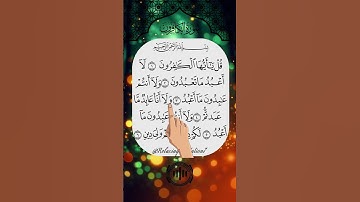 بِسْمِ اللَّهِ الرَّحْمَٰنِ الرَّحِيمِ
قُلْ يَا أَيُّهَا الْكَافِرُونَ ۝١ لَا
أَعْبُدُ مَا تَعْبُدُونَ ۝٢ وَلَا أَنْتُمْ
عَابِدُونَ مَا أَعْبُدُ ۝٣ وَلَا أَنَا عَابِدٌ مَّا
عَبَدْتُّمْ ۝٤ وَلَا أَنْتُمْ عَابِدُونَ مَا
أَعْبُدُ ۝٥ لَكُمْ دِينُكُمْ وَلِيَ دِينِ ۝٦